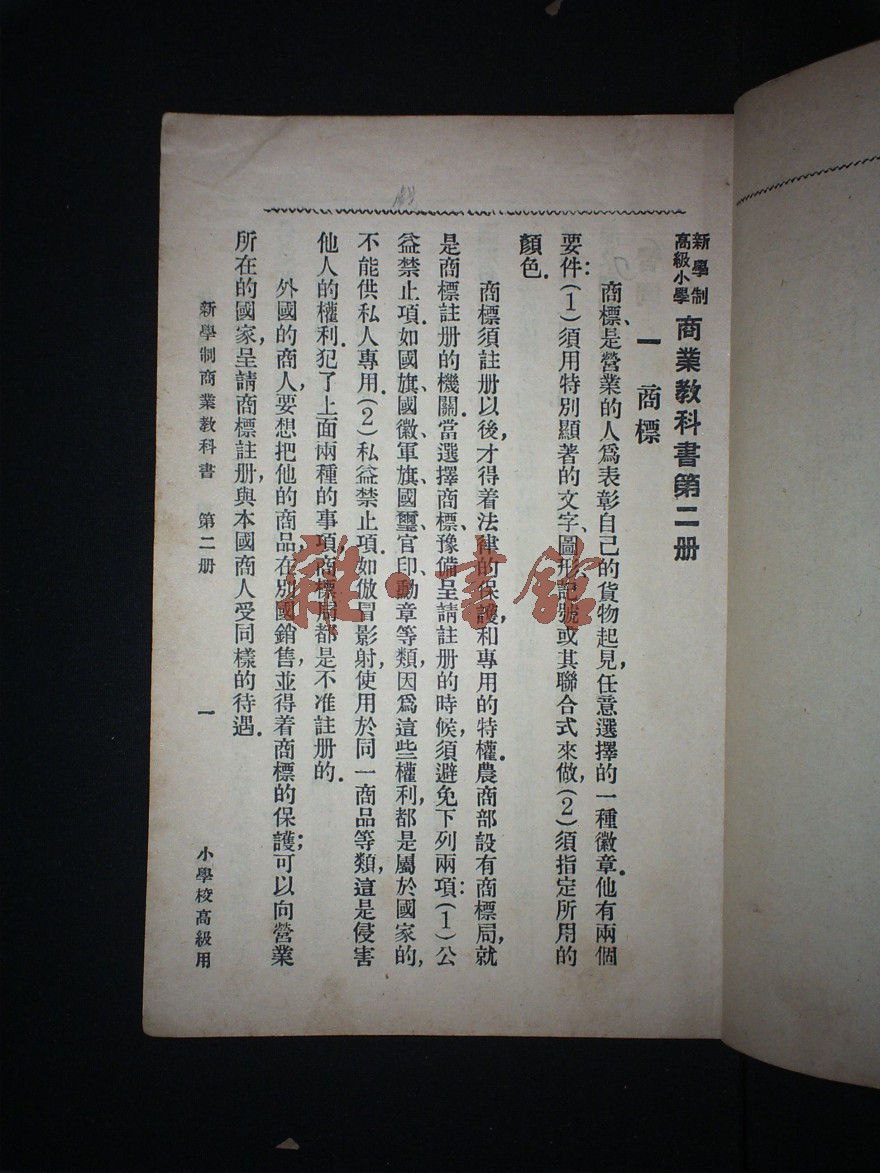 新學制
高級小學
商業教科書第二册
一 商標
商標、是營業的人爲表彰自己的貨物起見，任意選擇的一種徽章．他有兩個
要件：(1)須用特別顯著的文字、圖形、記號或其聯合式來做，(2)須指定所用的
顏色．
商標須註册以後，才得着法律的保護和專用的特權．農商部設有商標局，就
是商標註册的機關．當選擇商標、豫備呈請註册的時候，須避免下列兩項：(1)公
益禁止項．如國旗、國徽、軍旗、國璽、官印、勳章等類，因爲這些權利，都是屬於國家的，
不能供私人專用．(2)私益禁止項．如倣冒影射，使用於同一商品等類，這是侵害
他人的權利．犯了上面兩種的事項，商標局都是不准註册的．
外國的商人，要想把他的商品，在別國銷售，並得着商標的保護；可以向營業
所在的國家，呈請商標註册，與本國商人受同樣的待遇．
新學制商業教科書 第二册 一 小學校高級用
雜·書館